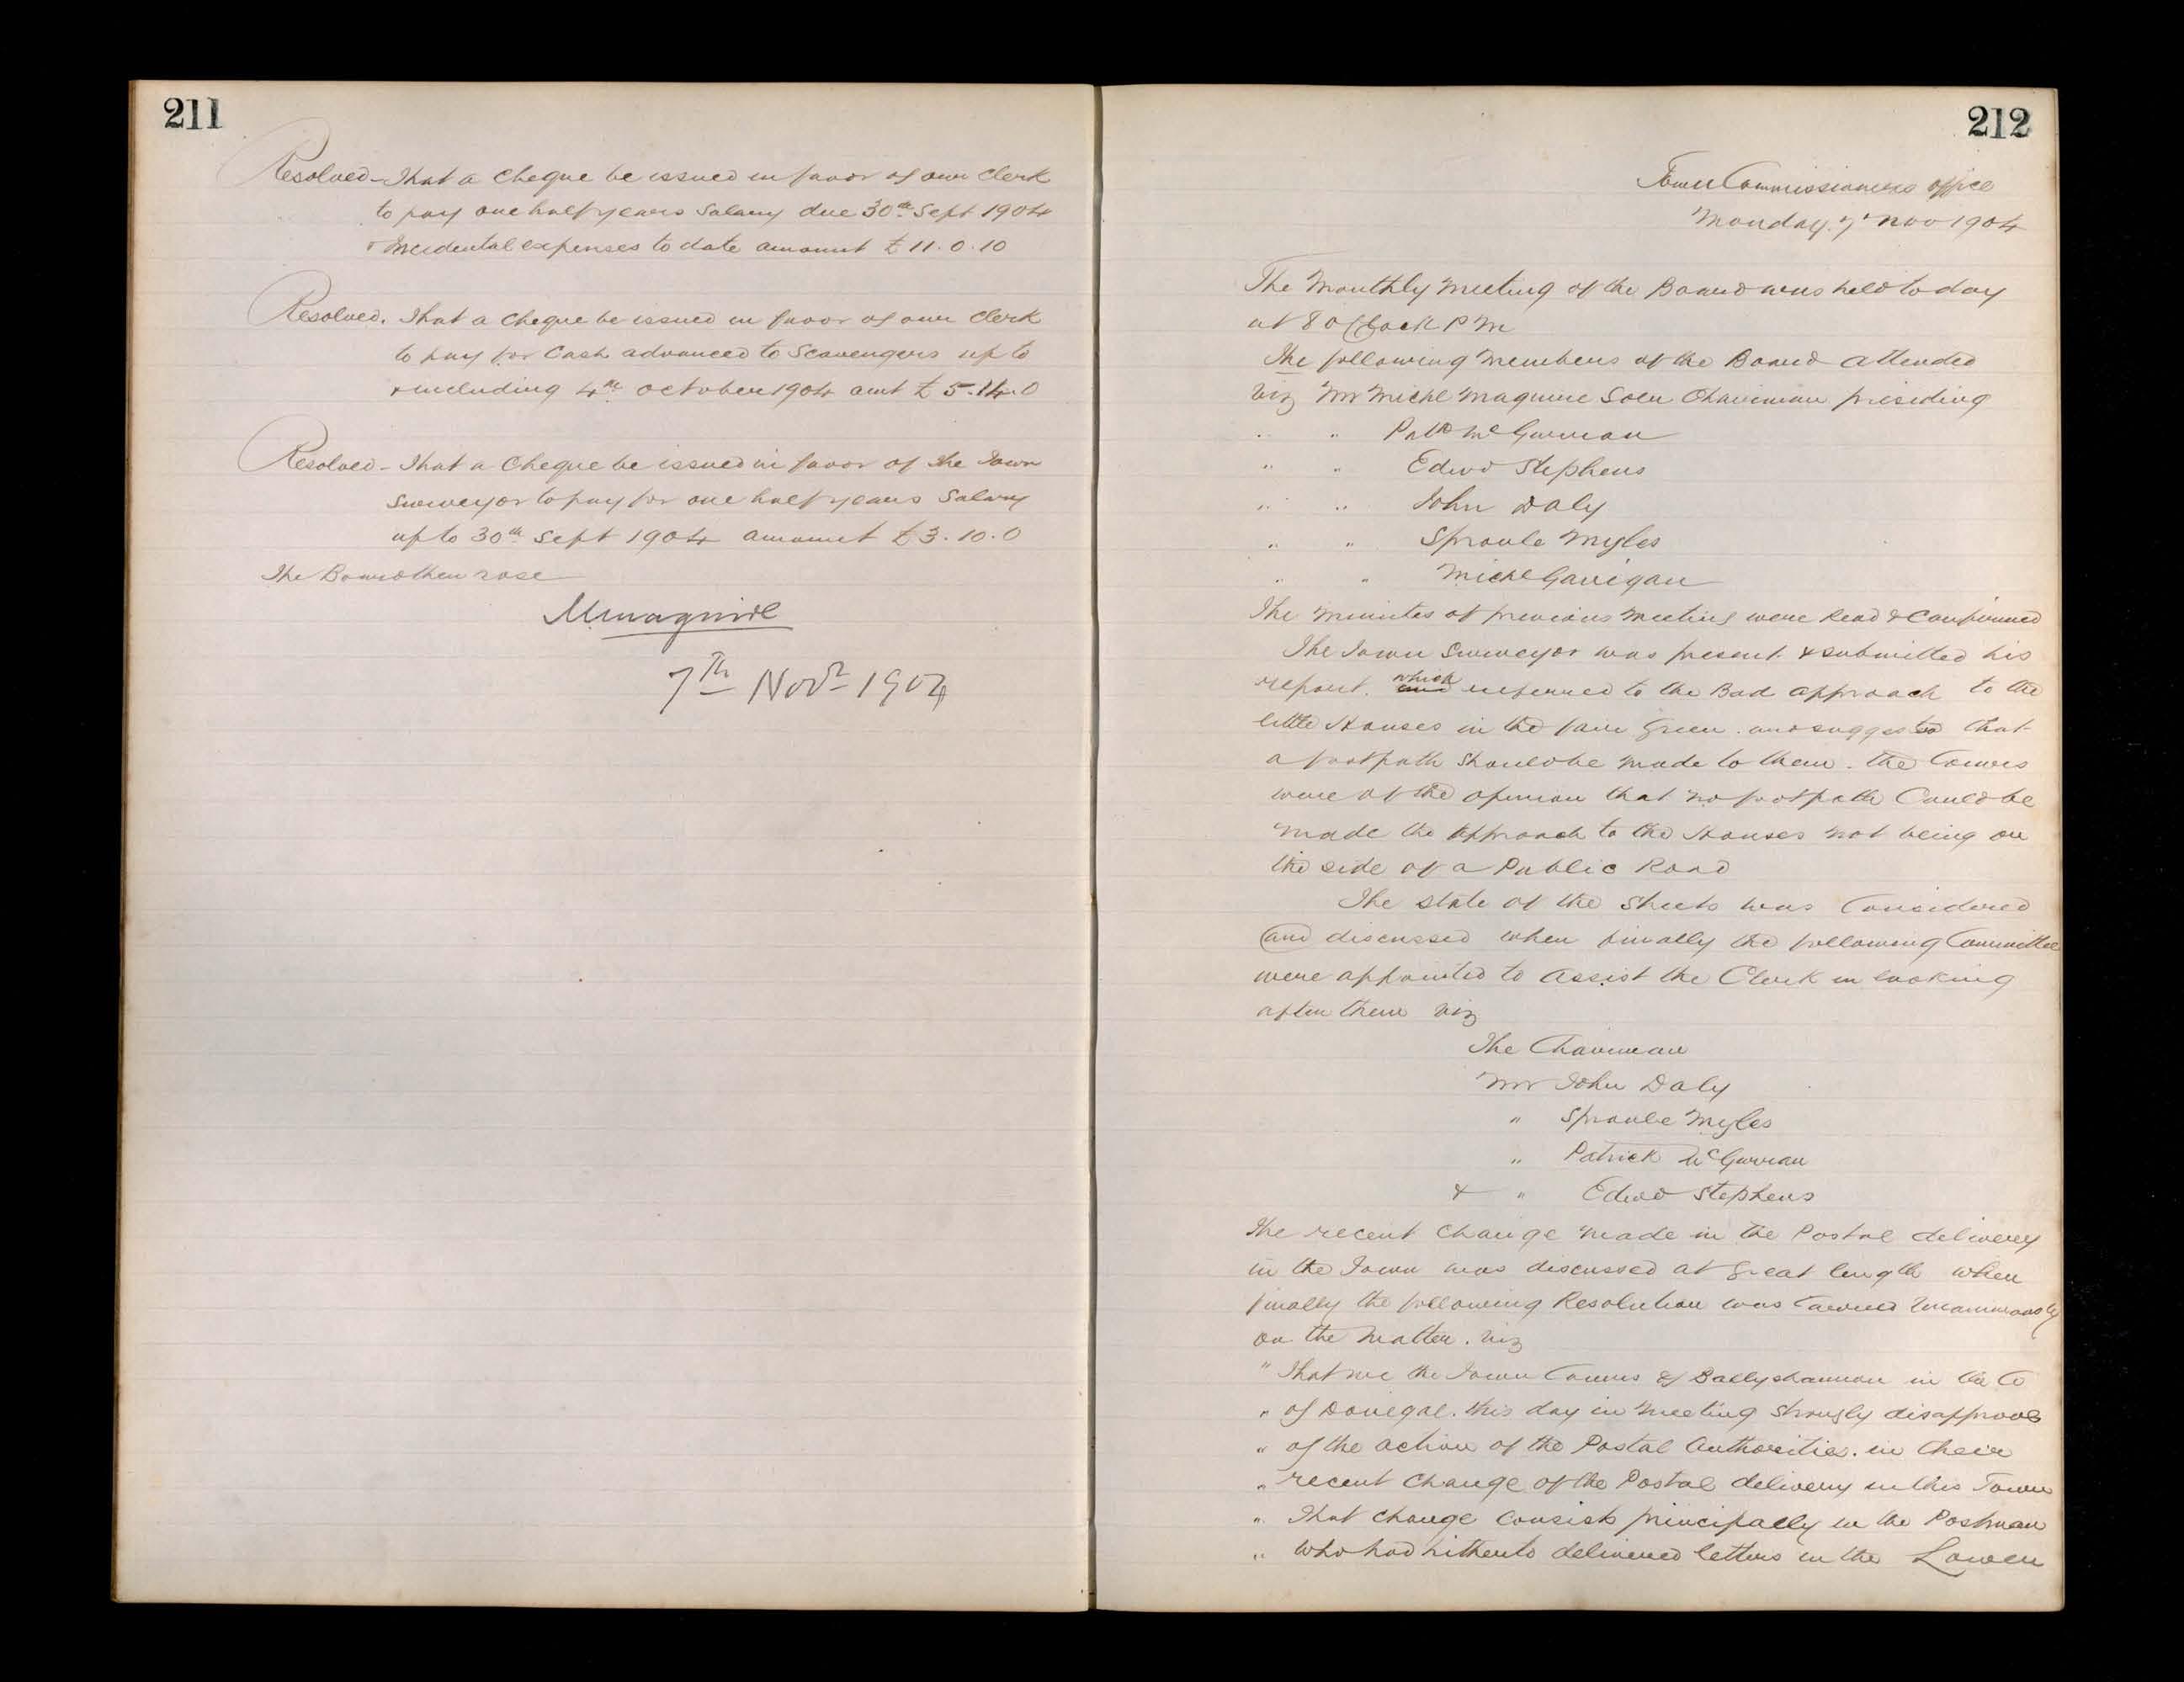 211
Resolved - That a Cheque be issued in favor of our Clerk
to pay one half years Salary due 30th Sept 1904
& Incidental expenses to date amount £11.0.10
Resolved. That a Cheque be issued in favor of our Clerk
to pay for Cash advanced to Scavengers up to
& including 4th October 1904 amt £5.14.0
Resolved - That a Cheque be issued in favor of the Town
Surveyor to pay for one half years Salary
up to 30th Sept 1904 amount £3.10.0
The Board then rose
M Maguire
7th Novr 1904
212
Town Commissioners office
Monday 7 Nov 1904
The Monthly Meeting of the Board was held to day
at 8 oClock PM
The following Members of the Board attended
viz Mr Michl Maguire Senr Chairman presiding
" " Patk McGurran
" " Edwd Stephens
" " John Daly
" " Sproule Myles
" " Michl Gavigan
The Minutes of previous Meeting were Read & Confirmed
The Town Surveyor was present & submitted his
report. which referred to the Bad approach to the
little Houses in the fair Green. and suggested that
a footpath should be made to them. The Comrs
were of the opinion that no footpath Could be
made the approach to the Houses not being on
the side of a Public Road
The state of the Streets was Considered
and discussed when finally the following Committee
were appointed to assist the Clerk in looking
after them viz
The Chairman
Mr John Daly
" Sproule Myles
" Patrick McGurran
& " Edwd Stephens
The recent change made in the Postal delivery
in the Town was discussed at great length when
finally the following Resolution was Carried Unanimously
on the Matter. viz
" That we the Town Comrs of Ballyshannon in the Co
" of Donegal. this day in Meeting strongly disapprove
" of the action of the Postal Authorities. in their
" recent Change of the Postal delivery in this Town
" That change Consists principally in the Postman
" who had hitherto delivered letters in the Lower